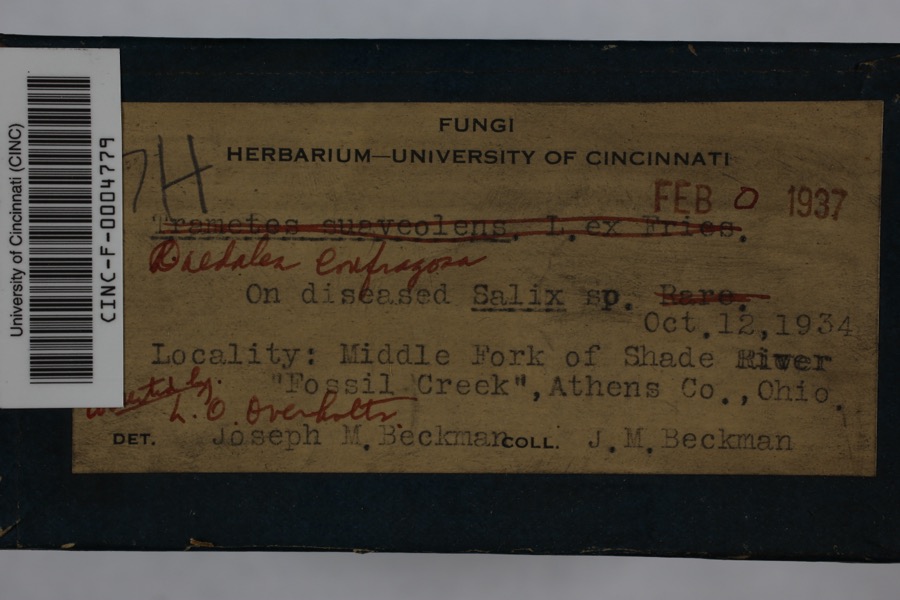 University of Cincinnati (CINC)
CINC-F-0004779
FUNGI
HERBARIUM—UNIVERSITY OF CINCINNATI
H
FEB 0 1937
Trametos suaveolens, L. ex Fries.
Daedalea confragosa
On diseased Salix sp. Rare.
Oct.12,1934
Locality: Middle Fork of Shade River
"Fossil Creek",Athens Co.,Ohio.
by
L. O. Overholts
DET. Joseph M.Beckman COLL. J.M.Beckman